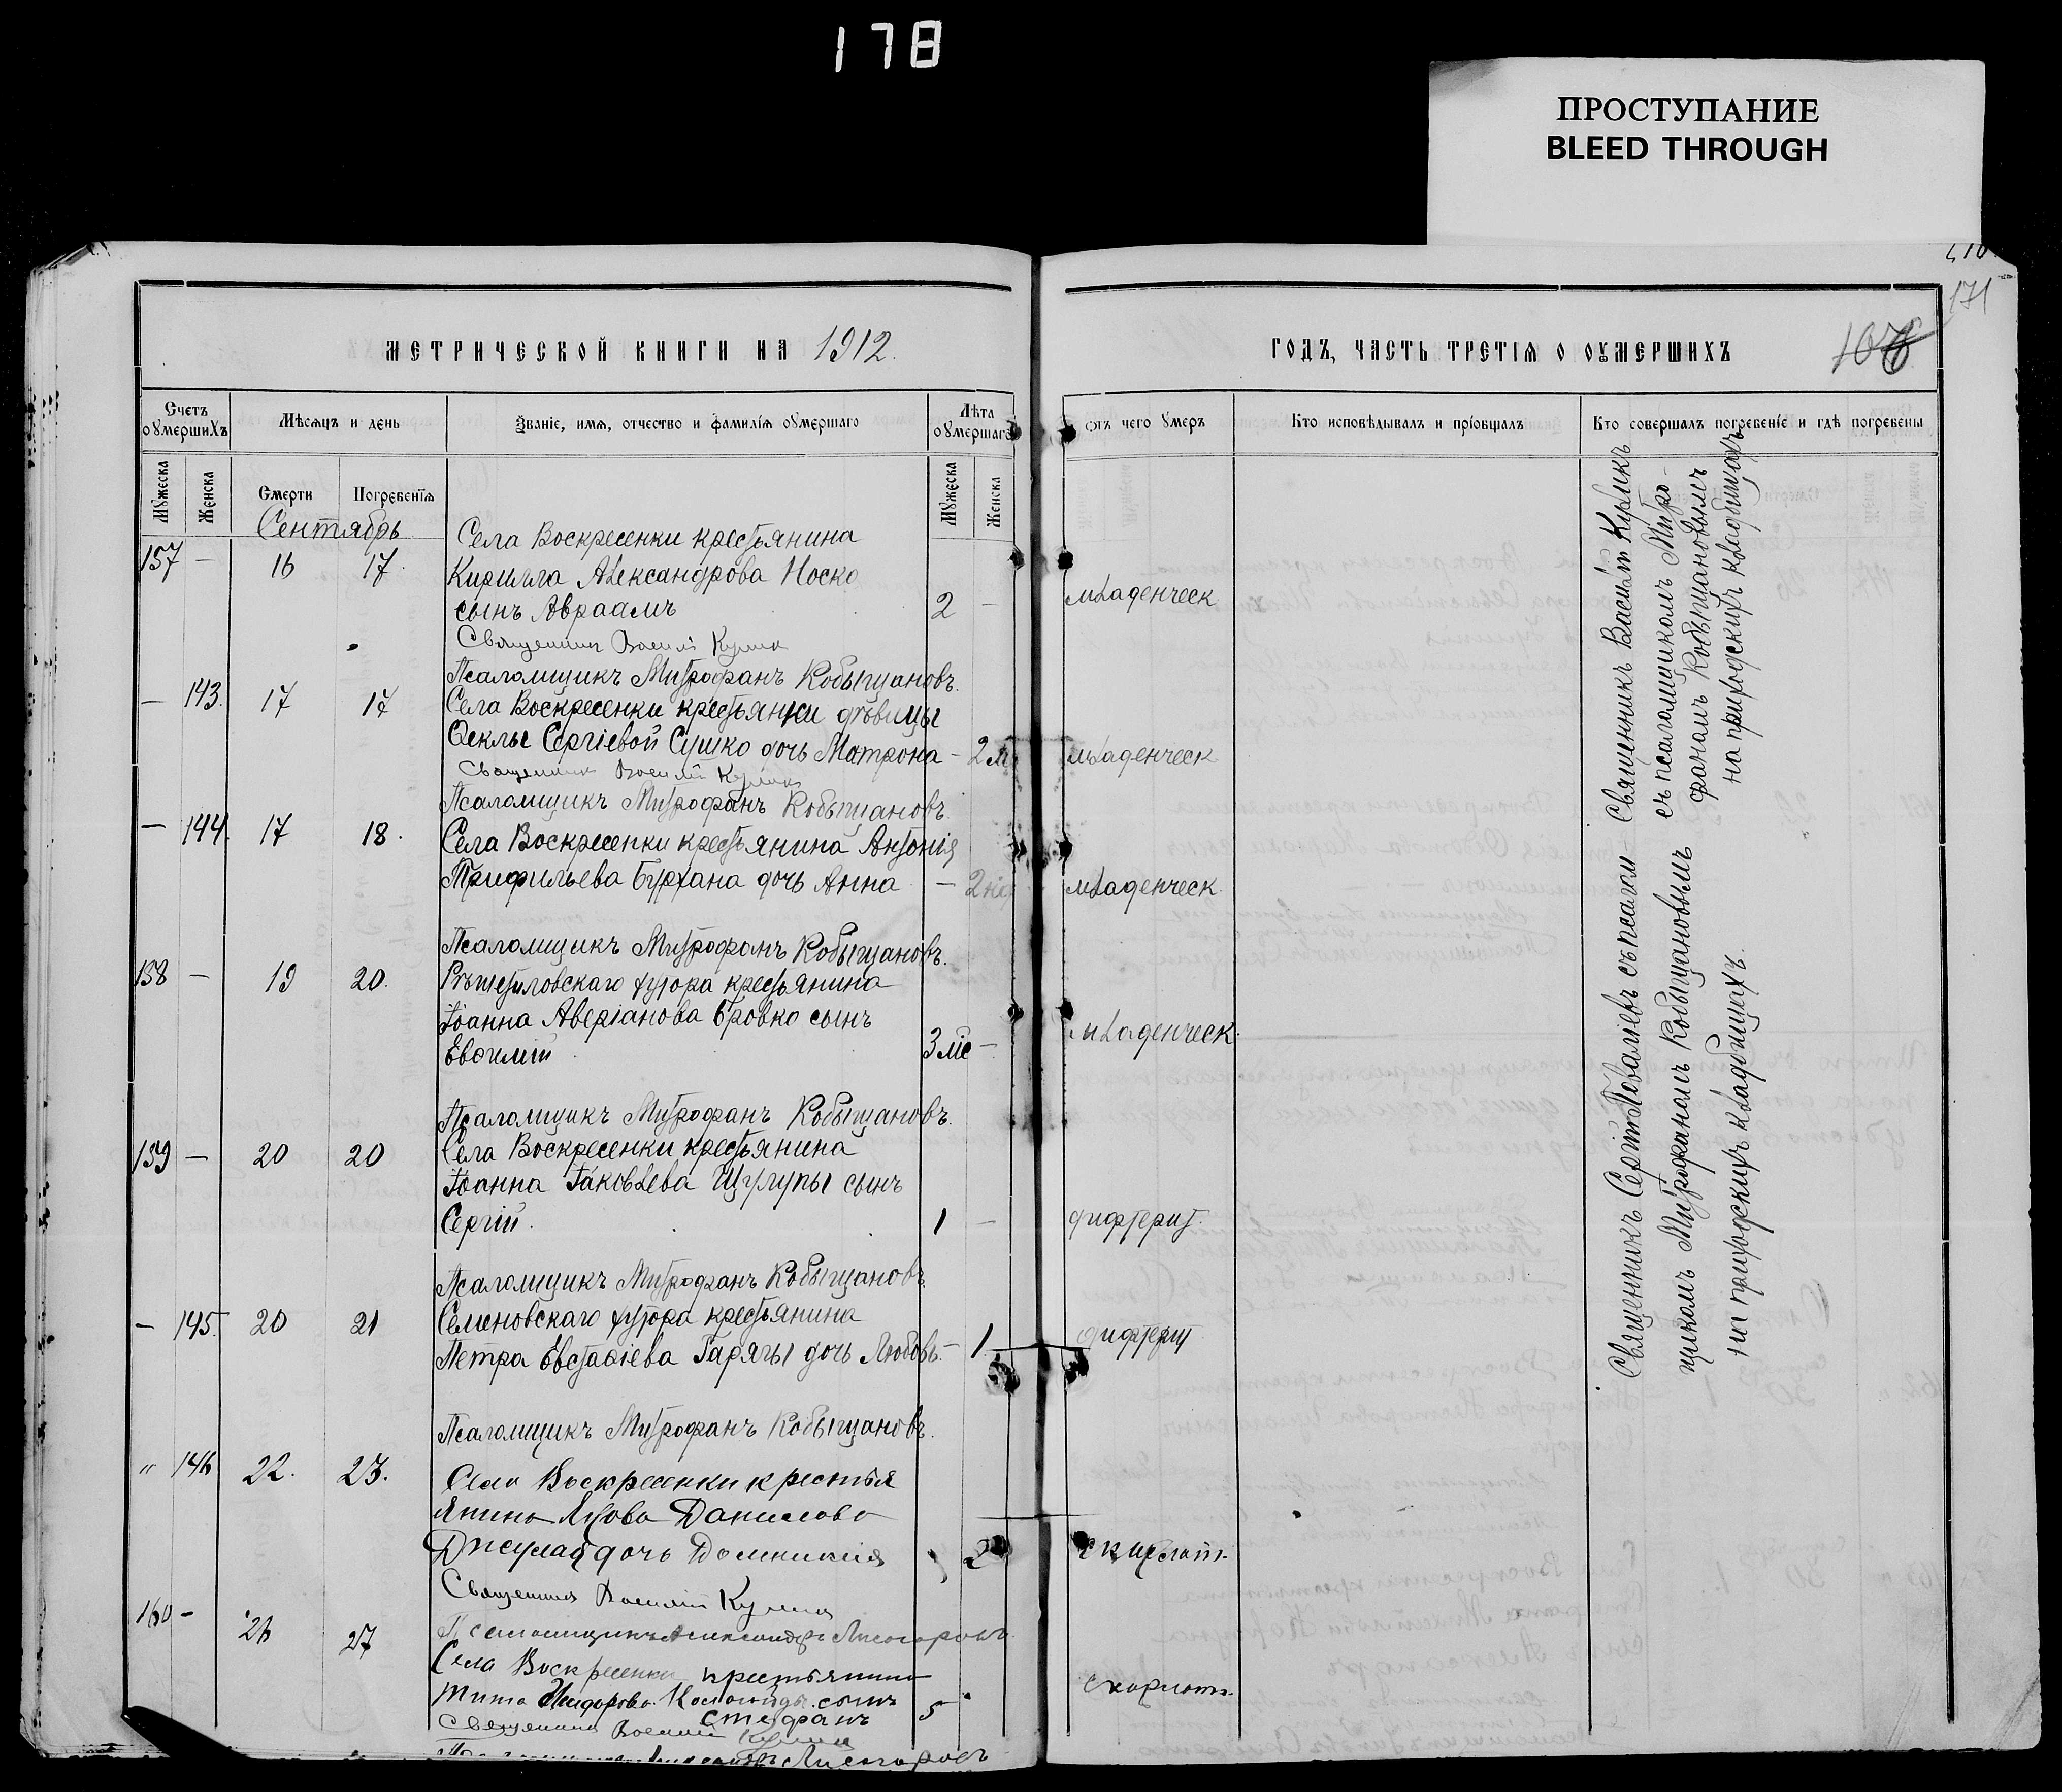 178
ПРОСТУПАНИЕ
BLEED THROUGH
171
МЕТРИЧЕСКОЙ КНИГИ НА 1912.
ГОДЪ, ЧАСТЬ ТРЕТІЯ О ОУМЕРШИХЪ
Счетъ оумершихъ
Мѣсяцъ и день
Званіе, имя, отчество и фамилія оумершаго
Лѣта оумершаго
отъ чего умеръ
Кто исповѣдывалъ и пріобщалъ
Кто совершалъ погребеніе и гдѣ погребены
Мужеска
Женска
Смерти
Погребенія
Мужеска
Женска
Сентябрь
Села Воскресенки крестьянина
157 — 16 17. Кирилла Александрова Носко
сынъ Авраамъ 2 — младенческ
Священникъ Василій Куликъ
Псаломщикъ Митрофанъ Кобыщановъ.
— 143. 17 17 Села Воскресенки крестьянки дѣвицы
Ѳеклы Сергіевой Сушко дочь Матрона — 2 м младенческ
Священникъ Василій Куликъ
Псаломщикъ Митрофанъ Кобыщановъ.
— 144. 17 18. Села Воскресенки крестьянина Антонія
Трифильева Бурхана дочь Анна — 2 нед младенческ
Псаломщикъ Митрофанъ Кобыщановъ.
158 — 19 20. Рѣшетиловскаго хутора крестьянина
Іоанна Аверіанова Бровко сынъ
Евѳимій 3 міс — младенческ.
Псаломщикъ Митрофанъ Кобыщановъ.
159 — 20 20 Села Воскресенки крестьянина
Іоанна Іаковлева Щулупы сынъ
Сергій. 1 — дифтерит.
Псаломщикъ Митрофанъ Кобыщановъ
— 145. 20 21 Семеновскаго хутора крестьянина
Петра Евстафіева Гарягы дочь Любовь. — 1 дифтерит
Псаломщикъ Митрофанъ Кобыщановъ.
" 146 22. 23. Села Воскресенки крестья
янина Якова Данилова
дочь Домникія 2 скарлат.
Священникъ Василій Куликъ
160 — 26 27 Псаломщикъ Александръ Лисогоровъ
Села Воскресенки крестьянина
Тита сынъ скарлат.
Стефанъ 5
Священникъ Василій Куликъ
Псаломщикъ Александръ Лисогоровъ
Священникъ Василій Куликъ
съ псаломщикомъ Митро-
фаномъ Кобыщановымъ
на приходскихъ кладбищахъ
Священникъ Сергій Ковалевъ съ псалом-
щикомъ Митрофаномъ Кобыщановымъ
на приходскихъ кладбищахъ.